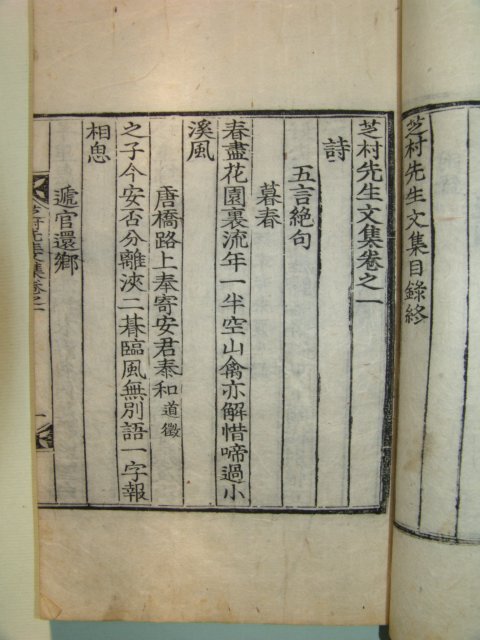 芝村先生文集目錄終
芝村先生文集卷之一
詩
五言絕句
暮春
春盡花園裏流年一半空山禽亦解惜啼過小
溪風
唐橋路上奉寄安君泰和道徵
之子今安否分離浹二朞臨風無別語一字報
相思
遞官還鄉
芝村先生文集卷之一
一